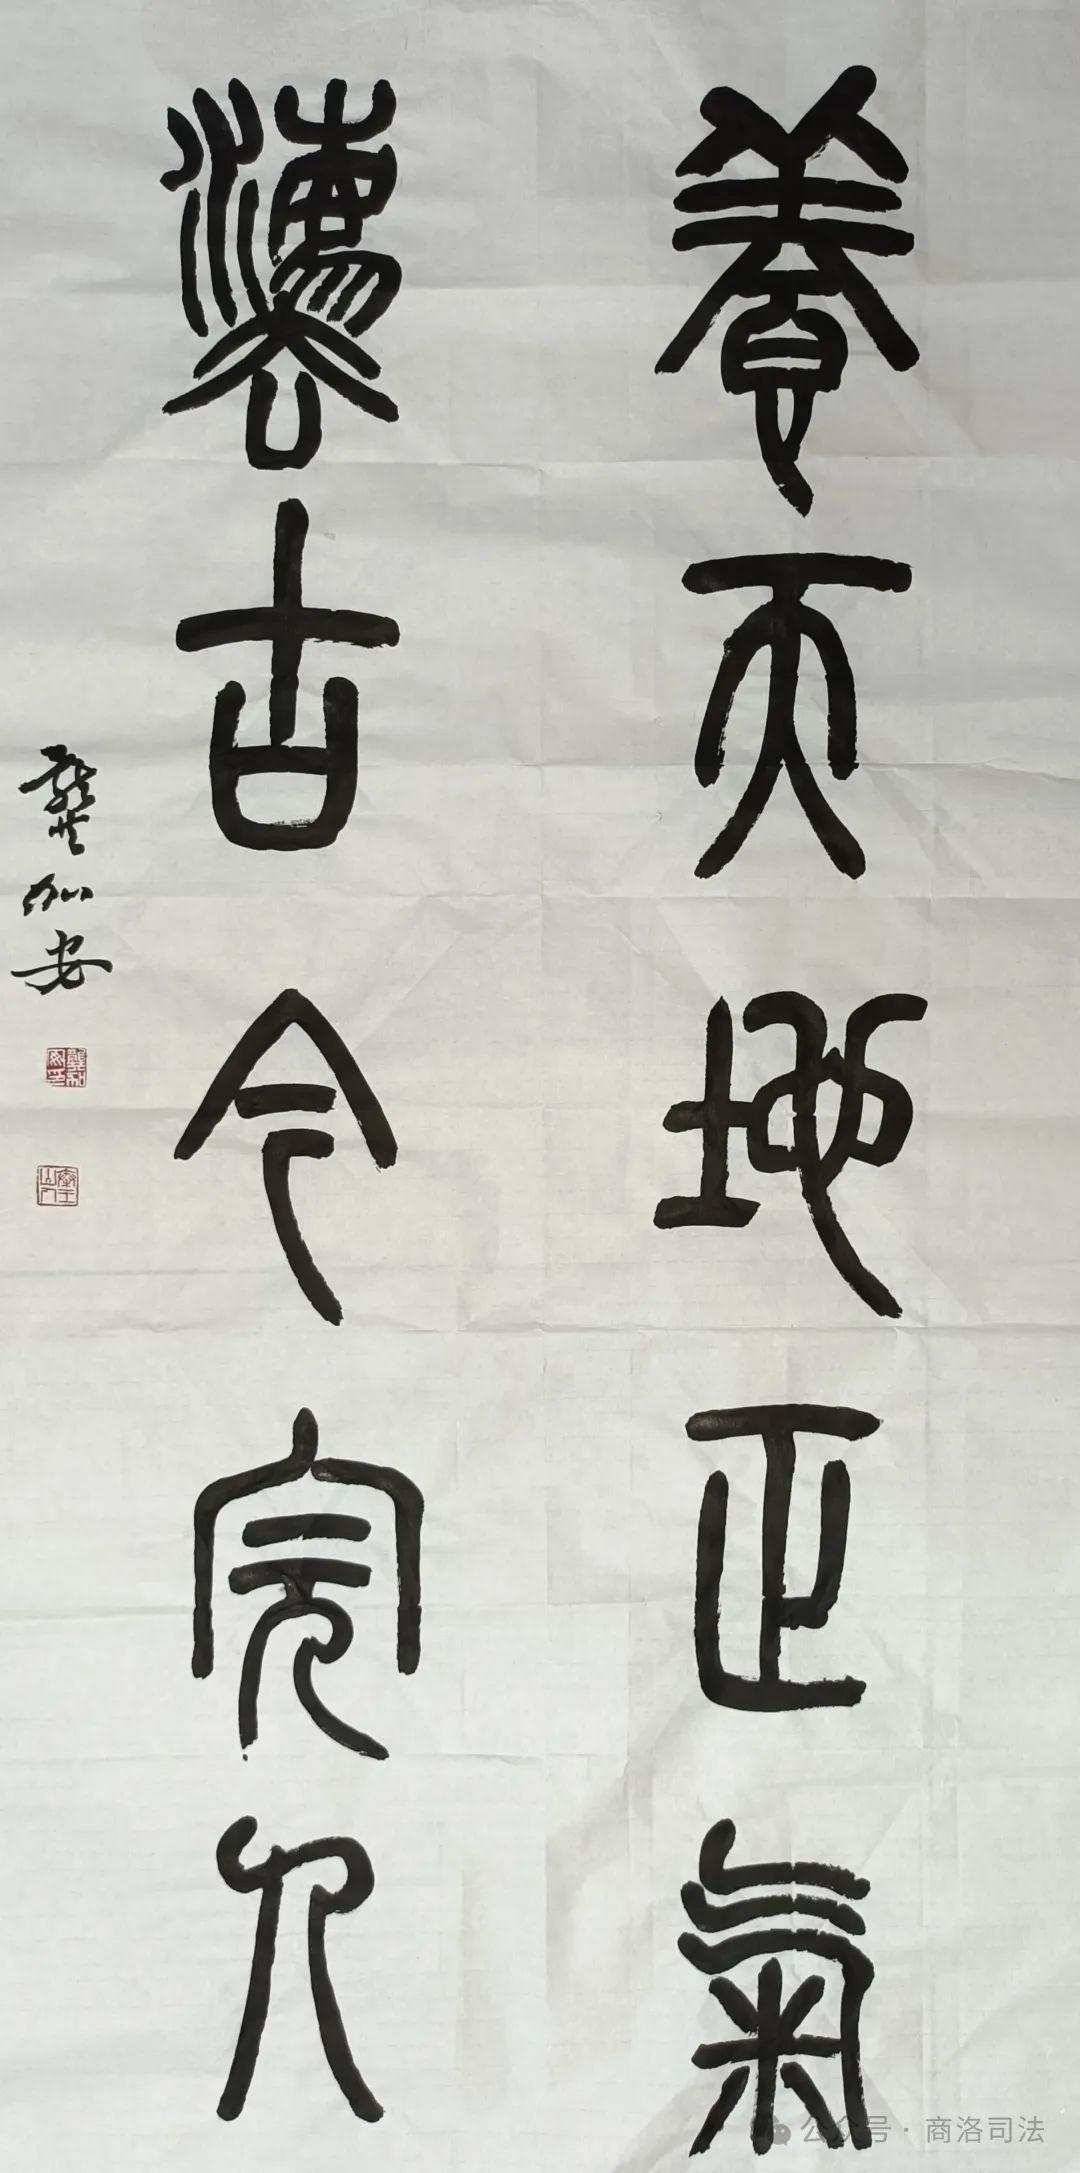 養天地正氣
灋古今完人
龔知安
公众号·商洛司法